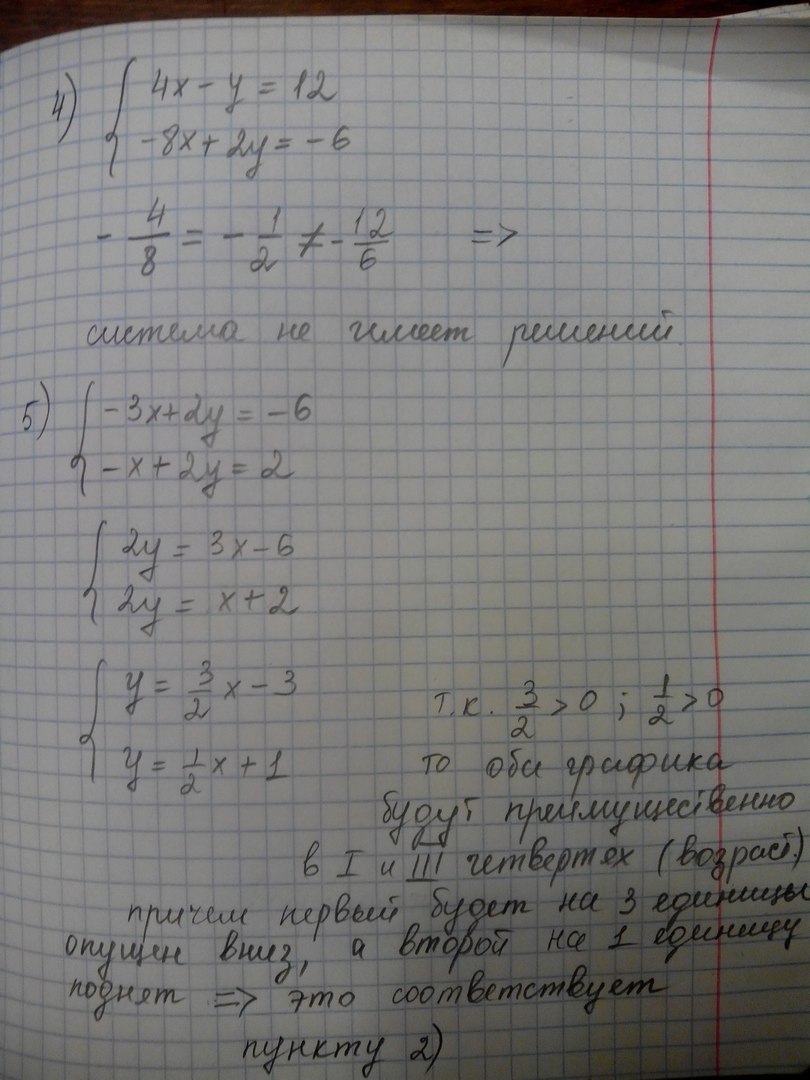 4) { 4x - y = 12
-8x + 2y = -6
- 4/8 = - 1/2 ≠ - 12/6 =>
система не имеет решений.
5) { -3x + 2y = -6
-x + 2y = 2
{ 2y = 3x - 6
2y = x + 2
{ y = 3/2 x - 3
y = 1/2 x + 1
т.к. 3/2 > 0 ; 1/2 > 0
то оба графика
будут преимущественно
в I и III четвертях (возраст.)
причем первый будет на 3 единицы
опущен вниз, а второй на 1 единицу
поднят => это соответствует
пункту 2)